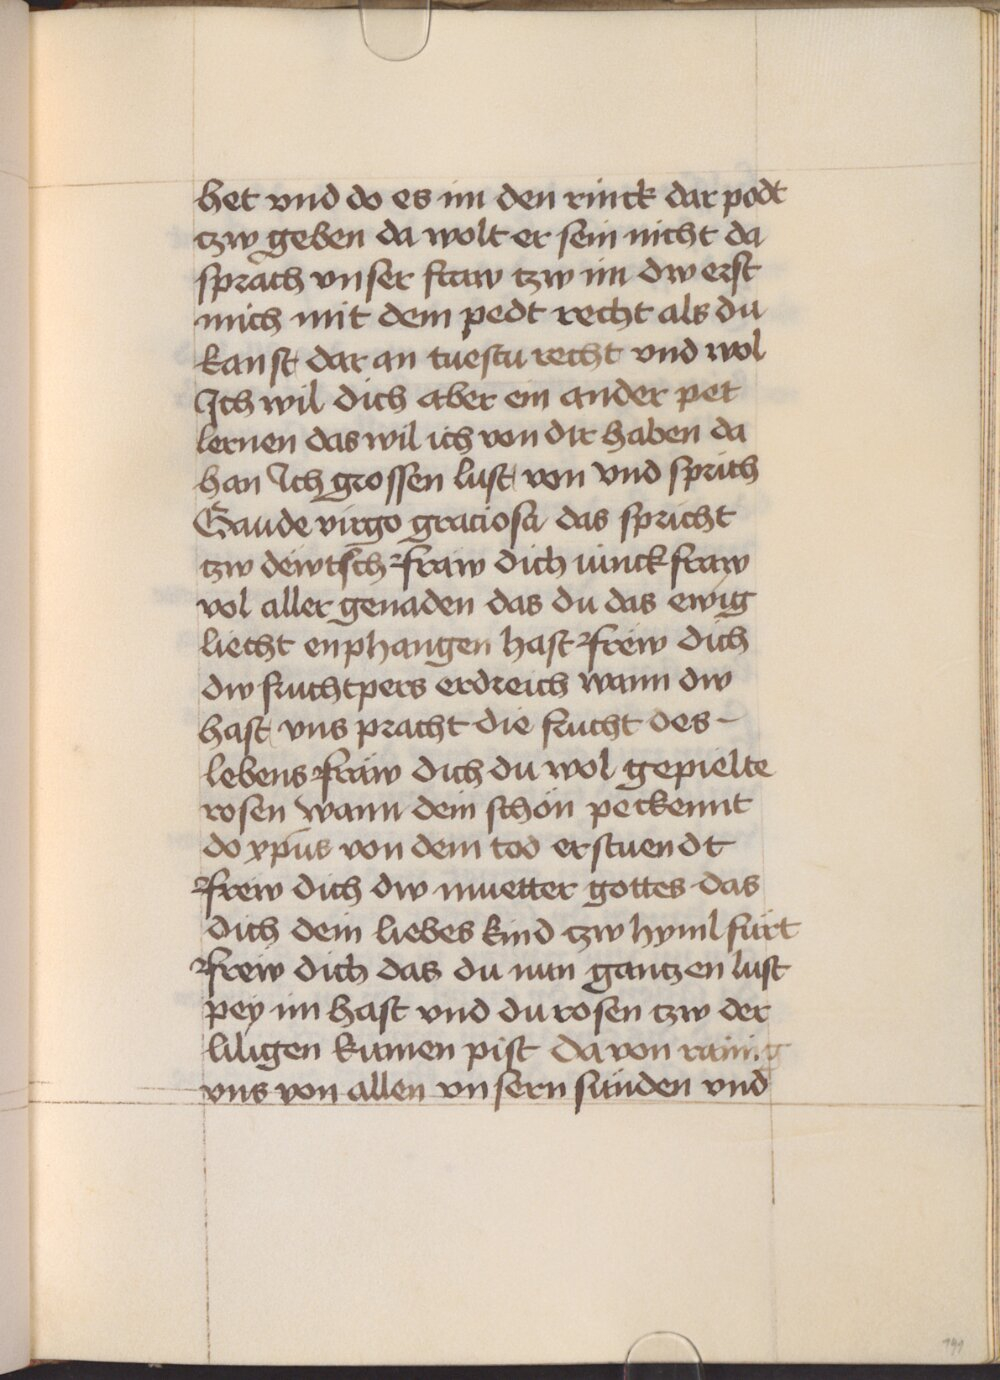 het vnd do es im den rinck dar podt
tzw geben da wolt er sein nicht da
sprach vnser fraw tzw im dw erst
mich mit dem pedt recht als du
kanst dar an tuestu recht vnd wol
Ich wil dich aber ein ander pet
lernen das wil ich von dir haben da
han Ich grossen lust von vnd sprich
Gaude virgo graciosa das spricht
tzw dewtsch Fraw dich iunckfraw
vol aller genaden das du das ewig
liecht enphangen hast Frew dich
dw fruchtpers erdreich wann dw
hast vns pracht die frucht des -
lebens Fraw dich du wol gepielte
rosen wann dein schon peckennt
do xpus von dem tod erstuendt
Frew dich dw muetter gottes das
dich dein liebes kind tzw hyml fürt
Frew dich das du nun gantzen lust
pey im hast vnd du rosen tzw der
liligen kumen pist da von rainig
vns von allen vnsern sünden vnd
191